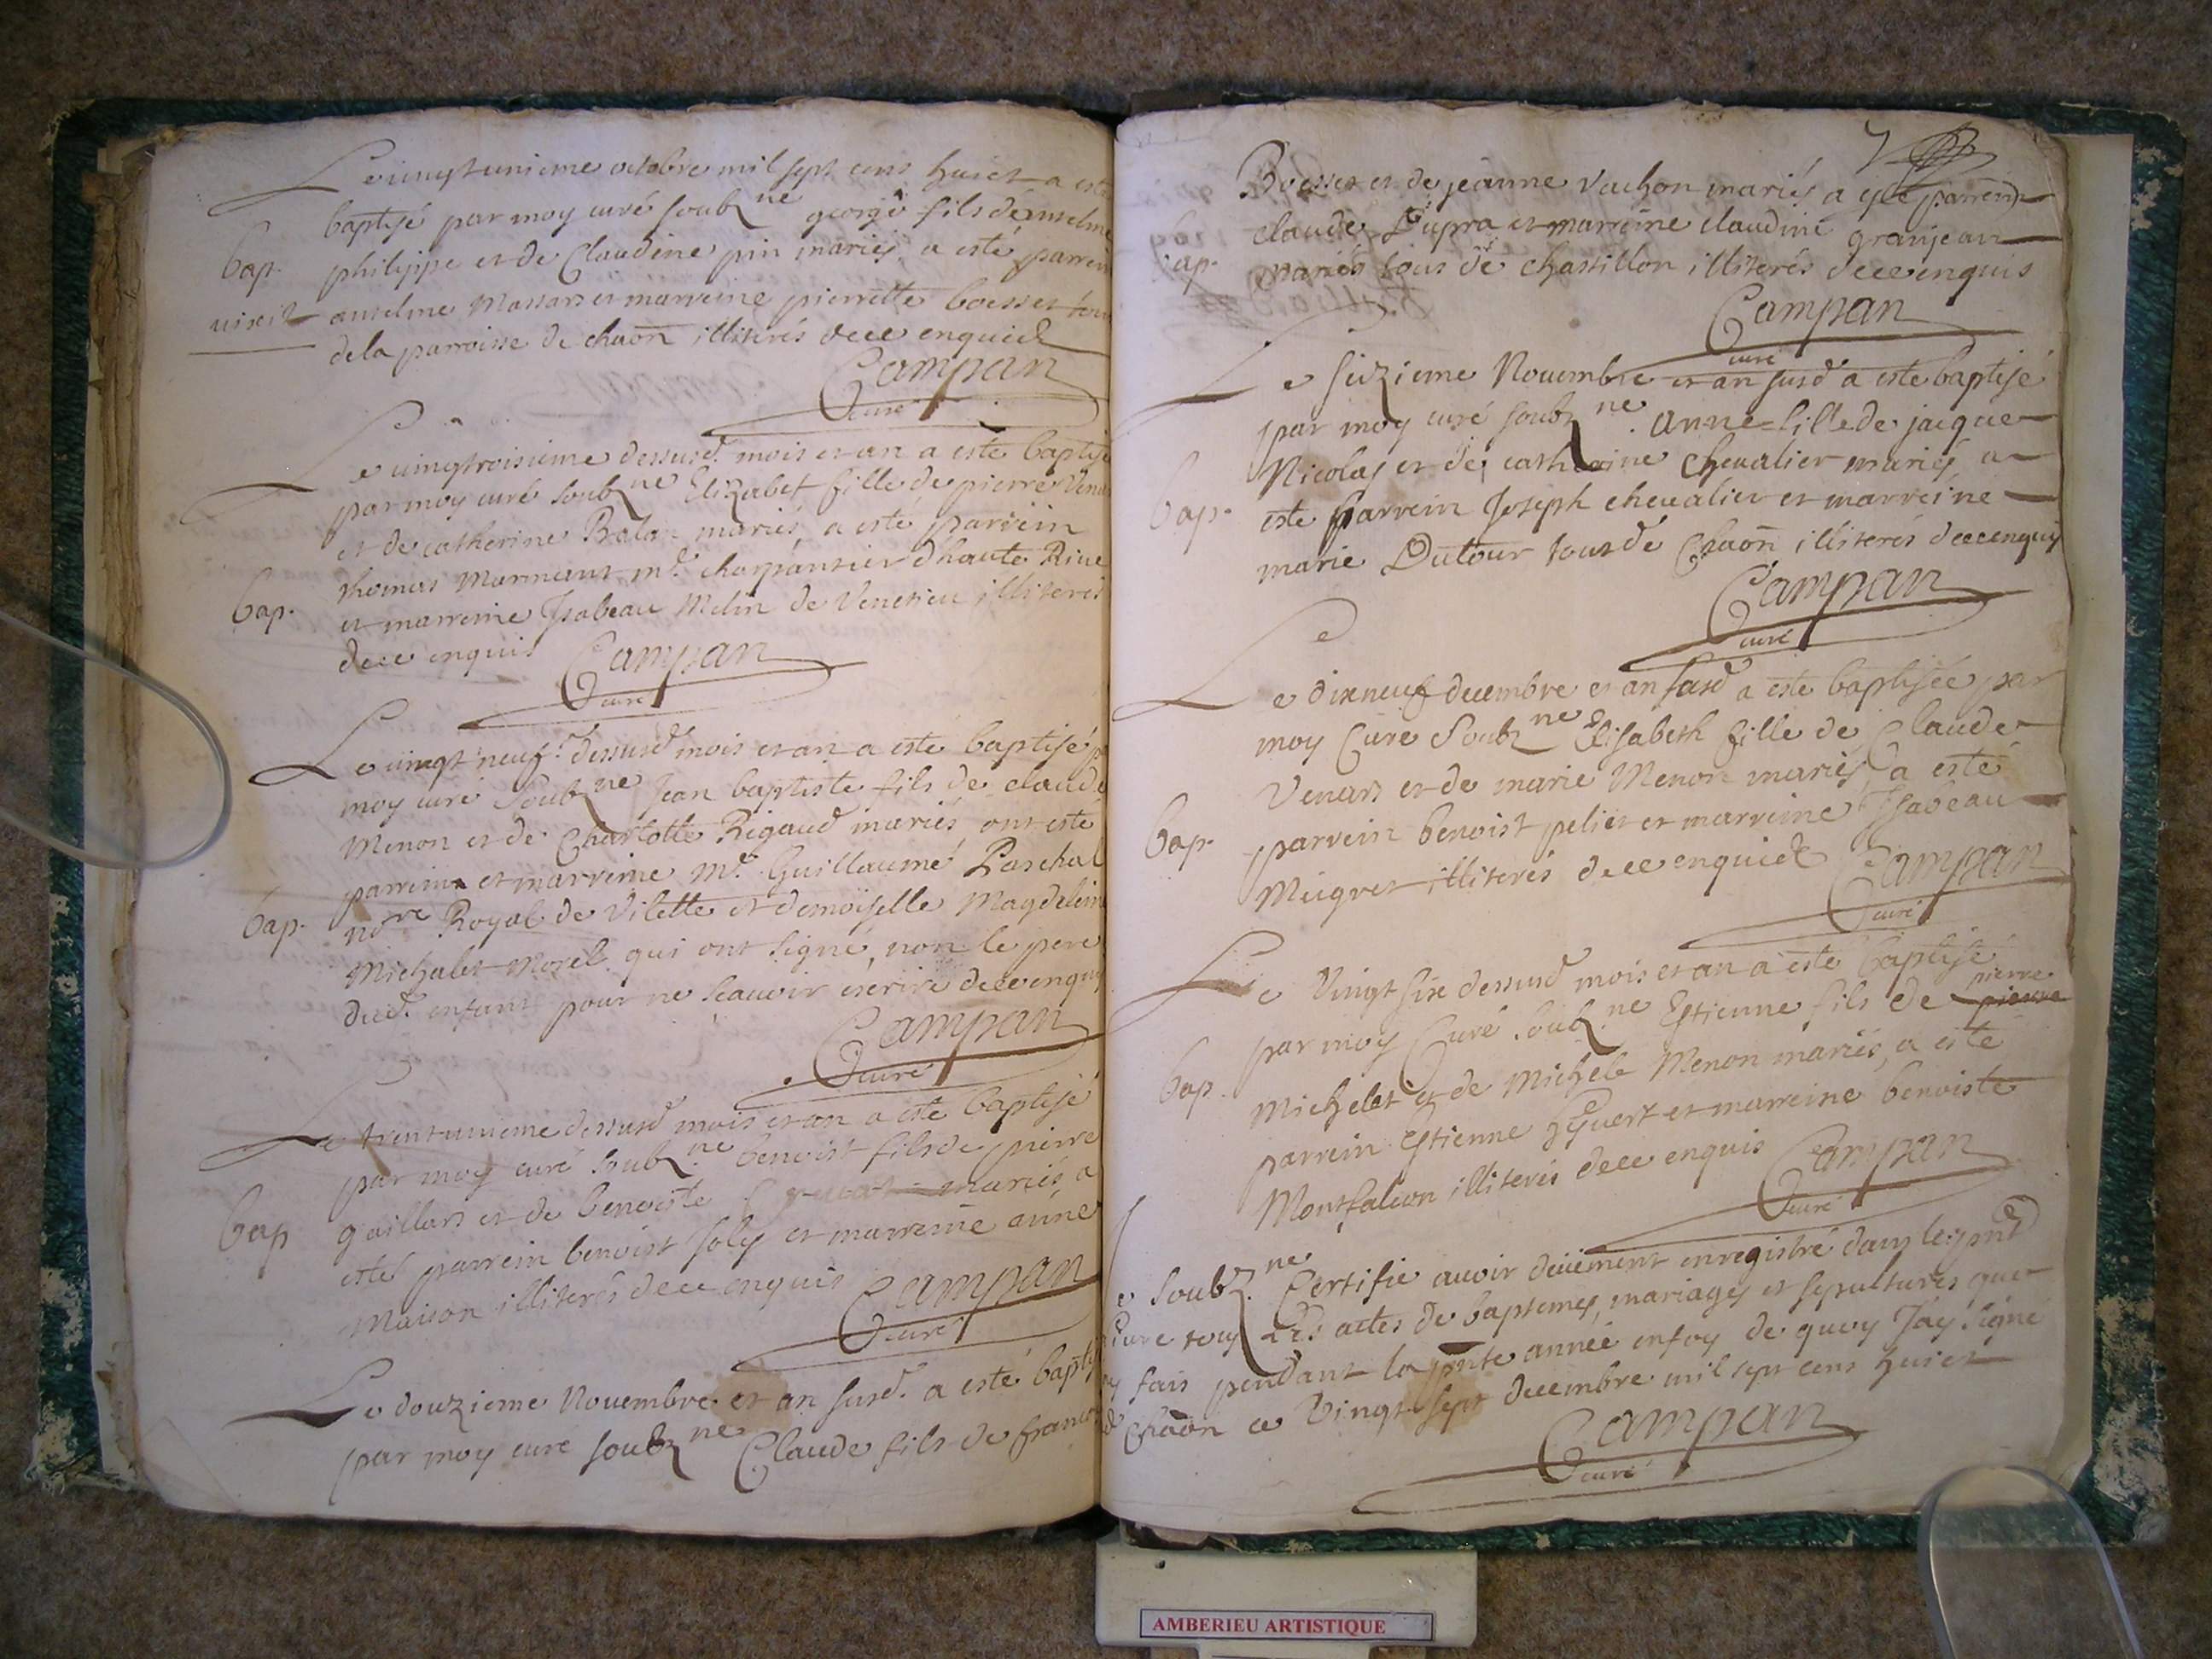 Le vingtunieme octobre mil sept cens huict a esté
baptisé par moy curé soubz.ne george fils de anselme
bap. philippe et de Claudine pin mariés, a esté parrein
vixit anselme Massard et marreine pierrette boesset tous
de la parroisse de chaon illiterés de ce enquicz
Campan
curé
Le vingtroisieme dessusd. mois et an a esté baptisé
par moy curé soubz.ne Elizabet fille de pierre
et de catherine mariés, a esté parrein
thomas Marmant m.e charpantier d'haute Rive
bap. et marreine Isabeau Melin de Venetieu illiterés
de ce enquis Campan
curé
Le vingt neuf.e dessusd mois et an a este baptisé
moy curé soubz.ne Jean baptiste fils de claude
Menon et de Charlotte Rigaud mariés ont esté
parrein et marreine M.e Guillaume Paschal
bap. no.re Royal de Vilette et demoiselle Magdeleine
Michalet Morel qui ont signé, non le pere
dud. enfant pour ne scavoir escrire de ce enquis
Campan
curé
Le trentunieme dessusd mois et an a este baptisé
par moy curé soubz.ne benoist fils de pierre
bap gaillard et de benoiste mariés, a
esté parrein benoist joly et marreine anne
Maison illiterés de ce enquis Campan
curé
Le douzieme Novembre et an susd. a esté baptisé
par moy curé soubz.ne Claude fils de francois
7
Boesset et de jeanne vachon mariés a esté parrein
claude Dupra et marreine claudine granjean
bap. mariés tous de chastillon illiterés de ce enquis
Campan
curé
Le seizieme Novembre et an susd a este baptisé
par moy curé soubz.ne anne fille de jacque
Nicolas et de catherine chevalier mariés, a
bap. este parrein Joseph chevalier et marreine
marie Dutour tous de Chaon illiterés de ce enquis
Campan
curé
Le dixneuf decembre et an susd a este baptisée par
moy Curé Soubz.ne Elisabeth fille de Claude
Venard et de marie Menon mariés, a esté
bap. parrein benoist pelier et marreine Isabeau
Meigret illiterés de ce enquicz Campan
curé
Le Vingt six dessusd mois et an a esté baptisé
par moy Curé soubz.ne Estienne fils de pierre
pierre
bap. Michelet et de Michele Menon mariés, a esté
parrein Estienne et marreine benoiste
Montfalcon illiterés de ce enquis Campan
curé
Je Soubz.ne Certifie avoir deüement enregistré dans le pnt
tous Les actes de baptemes, mariages et sepultures que
fais pendant la pnte année en foy de quoy J'ay signé
Chaon ce Vingt sept decembre mil sept cens huict
Campan
curé
AMBERIEU ARTISTIQUE